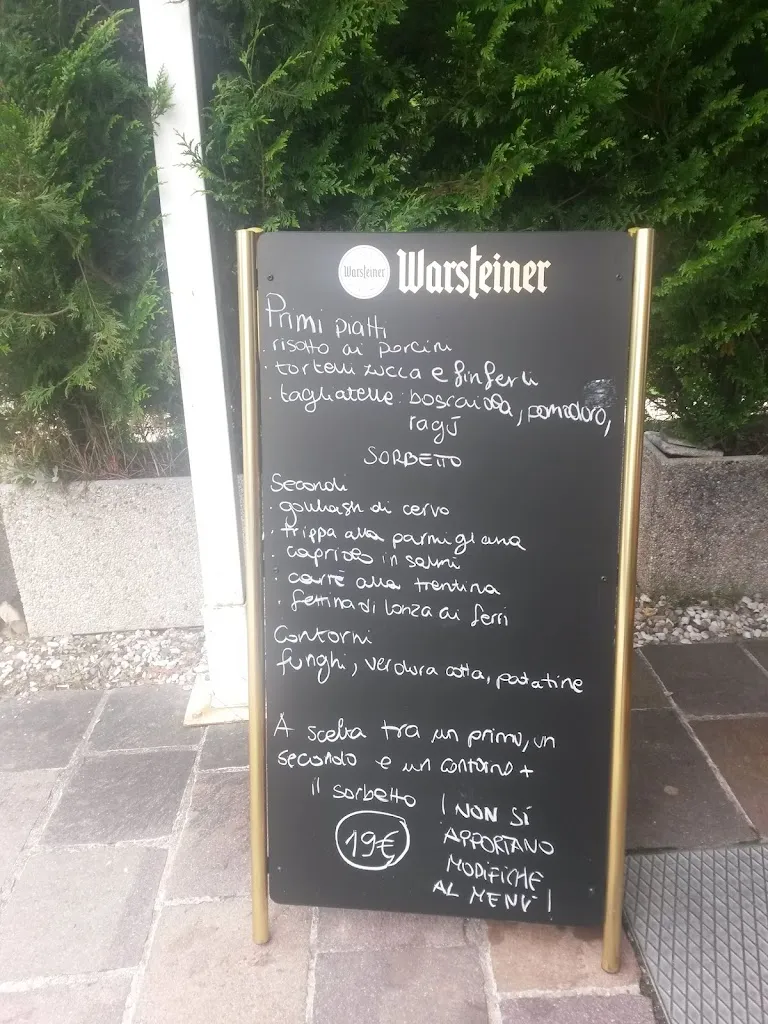 Warsteiner Warsteiner
Primi piatti
· risotto ai porcini
· tortelli zucca e finferli
· tagliatelle: boscaiola, pomodoro,
ragú
SORBETTO
Secondi
· goulash di cervo
· trippa alla parmigiana
· capriolo in salmì
· carrè alla trentina
· fettina di lonza ai ferri
Contorni
funghi, verdura cotta, patatine
A scelta tra un primo, un
secondo e un contorno +
il sorbetto
19€
! NON SI
APPORTANO
MODIFICHE
AL MENÙ !